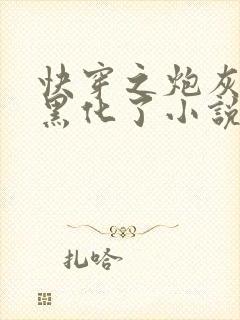 快穿之炮灰
黑化了小説
扎哈